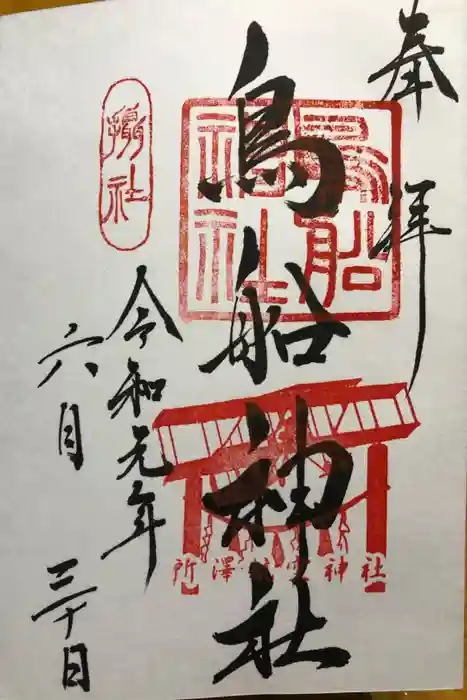 奉拝
鳥船神社
鳥船神社
摂社
令和元年
六月三十日
所澤神明社